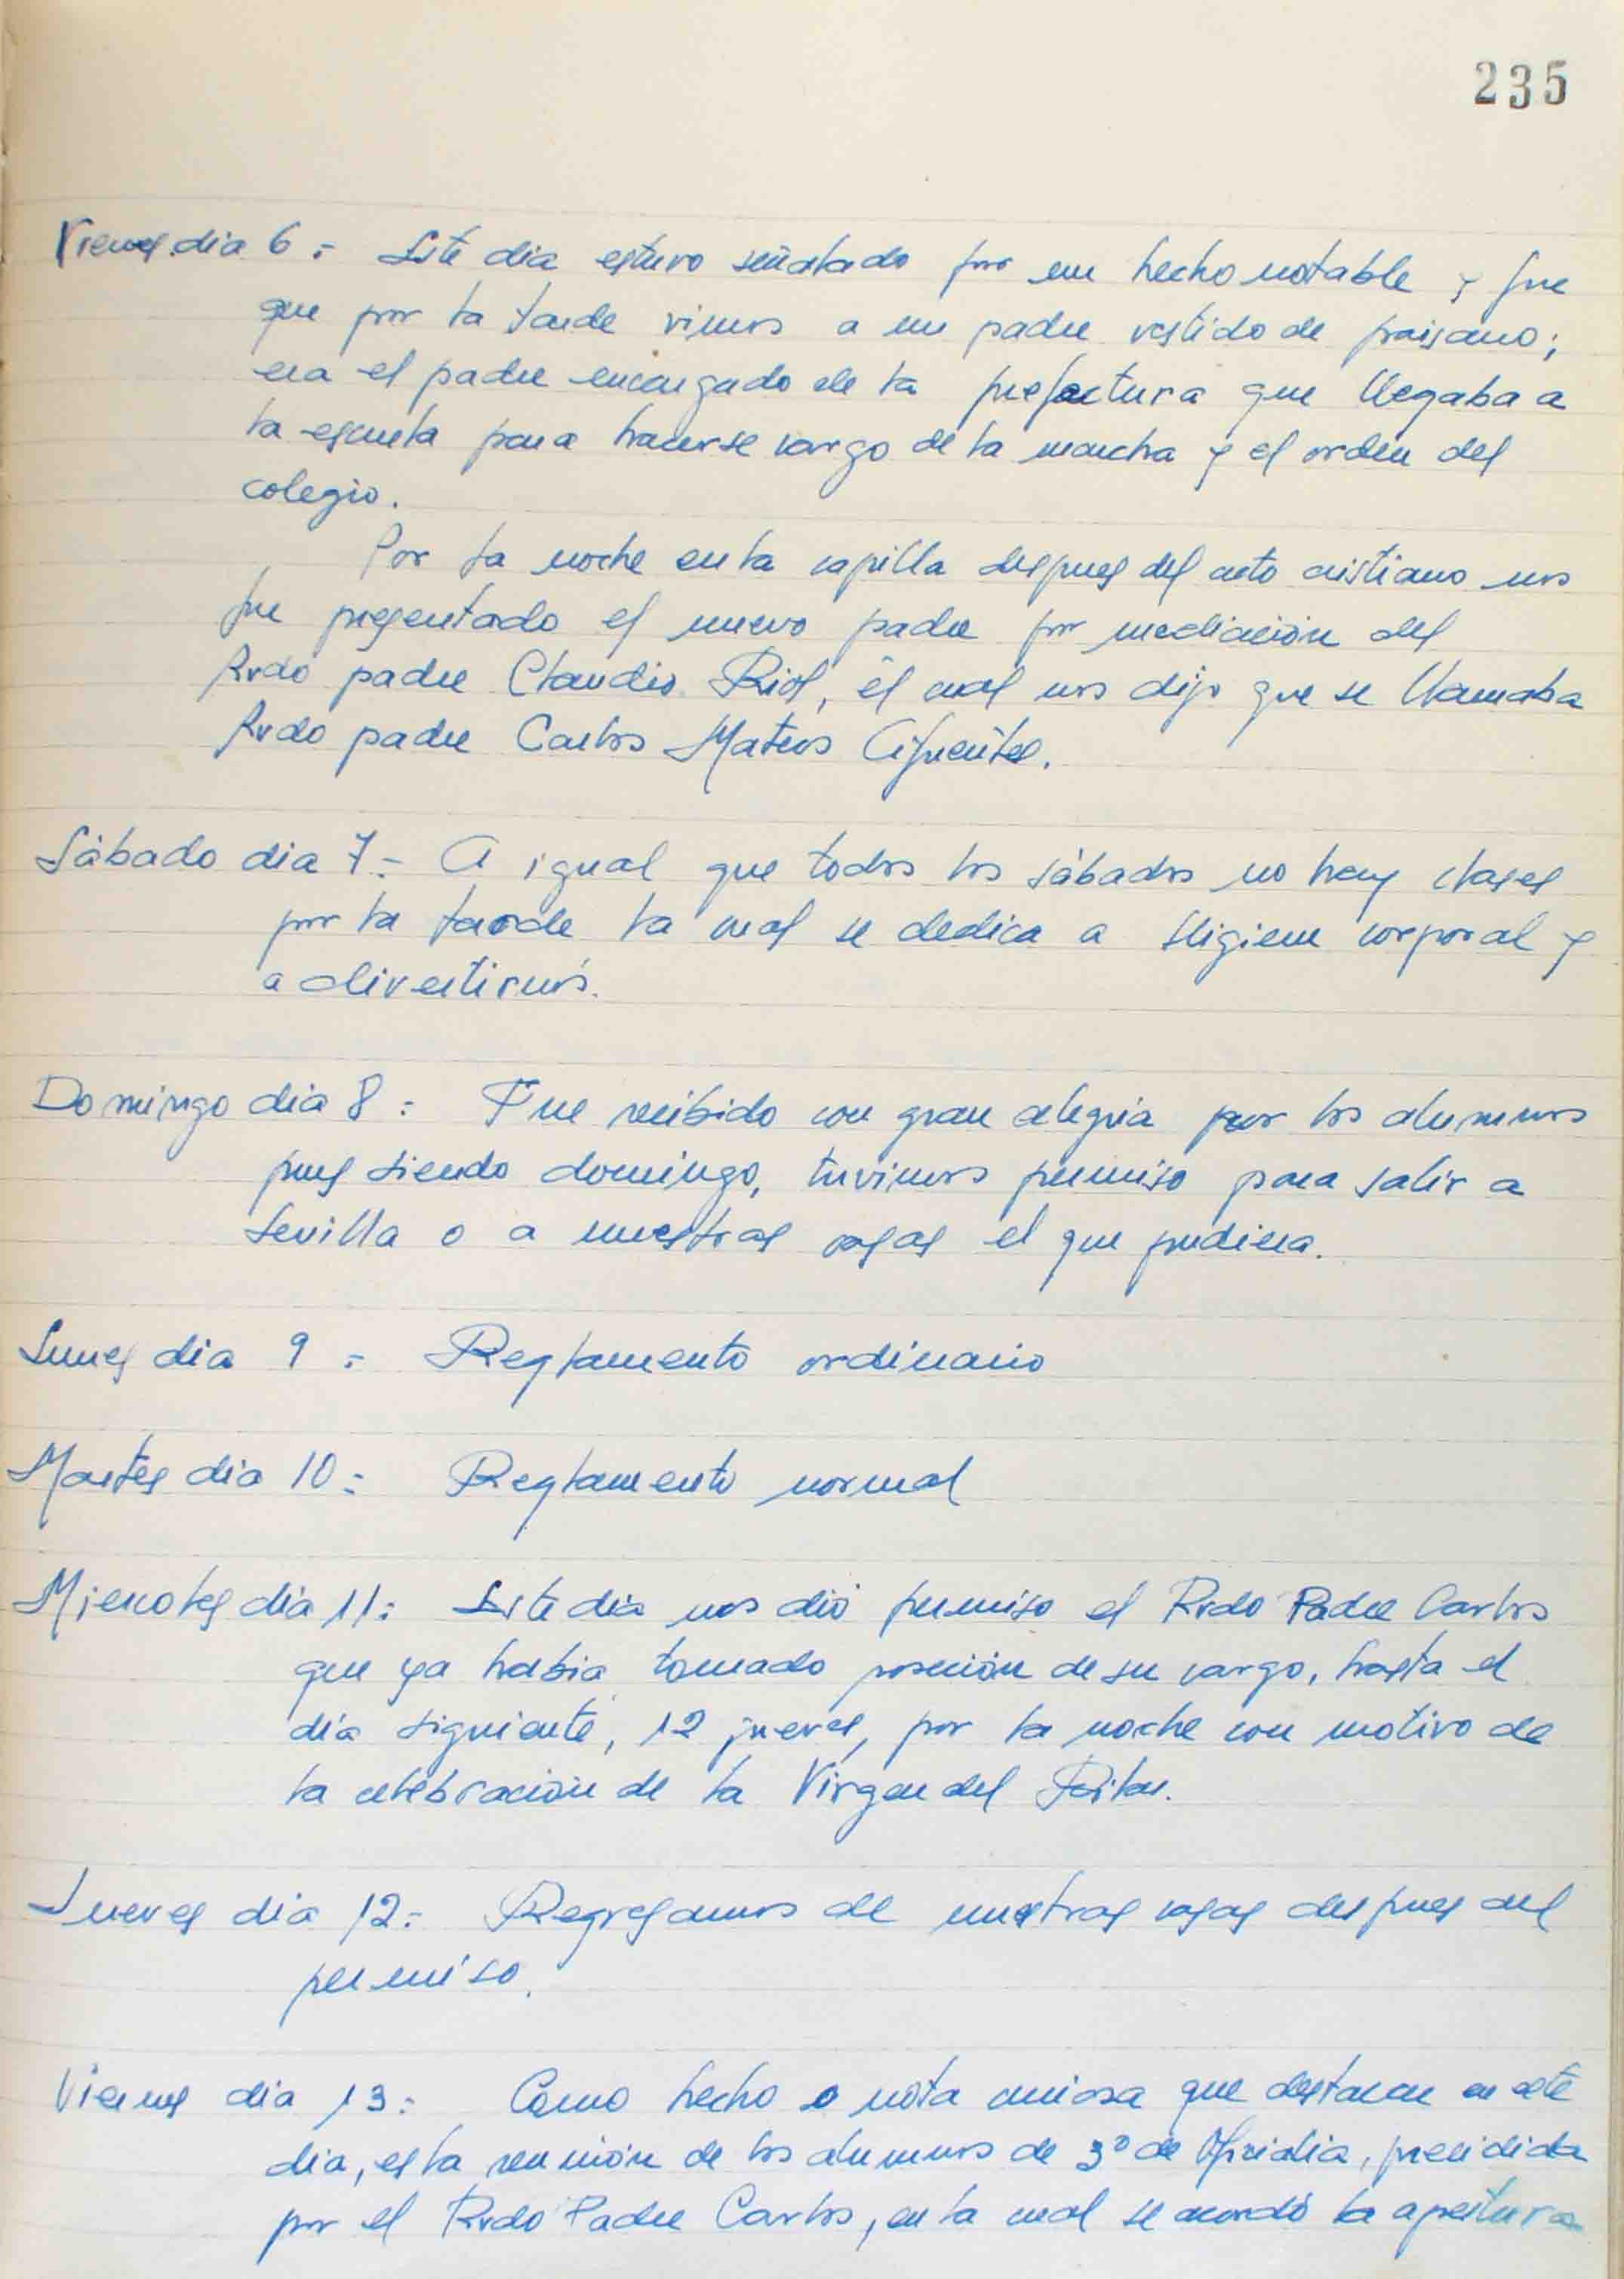 235
Viernes dia 6 = Este dia estuvo señalado por un hecho notable y fue
que por la tarde vimos a un padre vestido de paisano;
era el padre encargado de la prefectura que llegaba a
la escuela para hacerse cargo de la marcha y el orden del
colegio.
Por la noche en la capilla despues del acto cristiano nos
fue presentado el nuevo padre por mediación del
Rvdo padre Claudio Riol, él cual nos dijo que se llamaba
Rvdo padre Carlos Mateos Cifuentes.
Sábado dia 7 = A igual que todos los sábados no hay clases
por la tarde la cual se dedica a Higiene corporal y
a divertirnos.
Domingo dia 8 = Fue recibido con gran alegria por los alumnos
pues siendo domingo, tuvimos permiso para salir a
Sevilla o a nuestras casas el que pudiera.
Lunes dia 9 = Reglamento ordinario
Martes dia 10 = Reglamento normal
Miercoles dia 11 = Este dia nos dió permiso el Rvdo Padre Carlos
que ya habia tomado posición de su cargo, hasta el
dia siguiente, 12 jueves, por la noche con motivo de
la celebración de la Virgen del Pilar.
Jueves dia 12 = Regresamos de nuestras casas despues del
permiso.
Viernes dia 13 = Como hecho o nota curiosa que destacar en este
dia, es la reunión de los alumnos de 3º de Oficialia, presidida
por el Rvdo Padre Carlos, en la cual se acordó la apertura